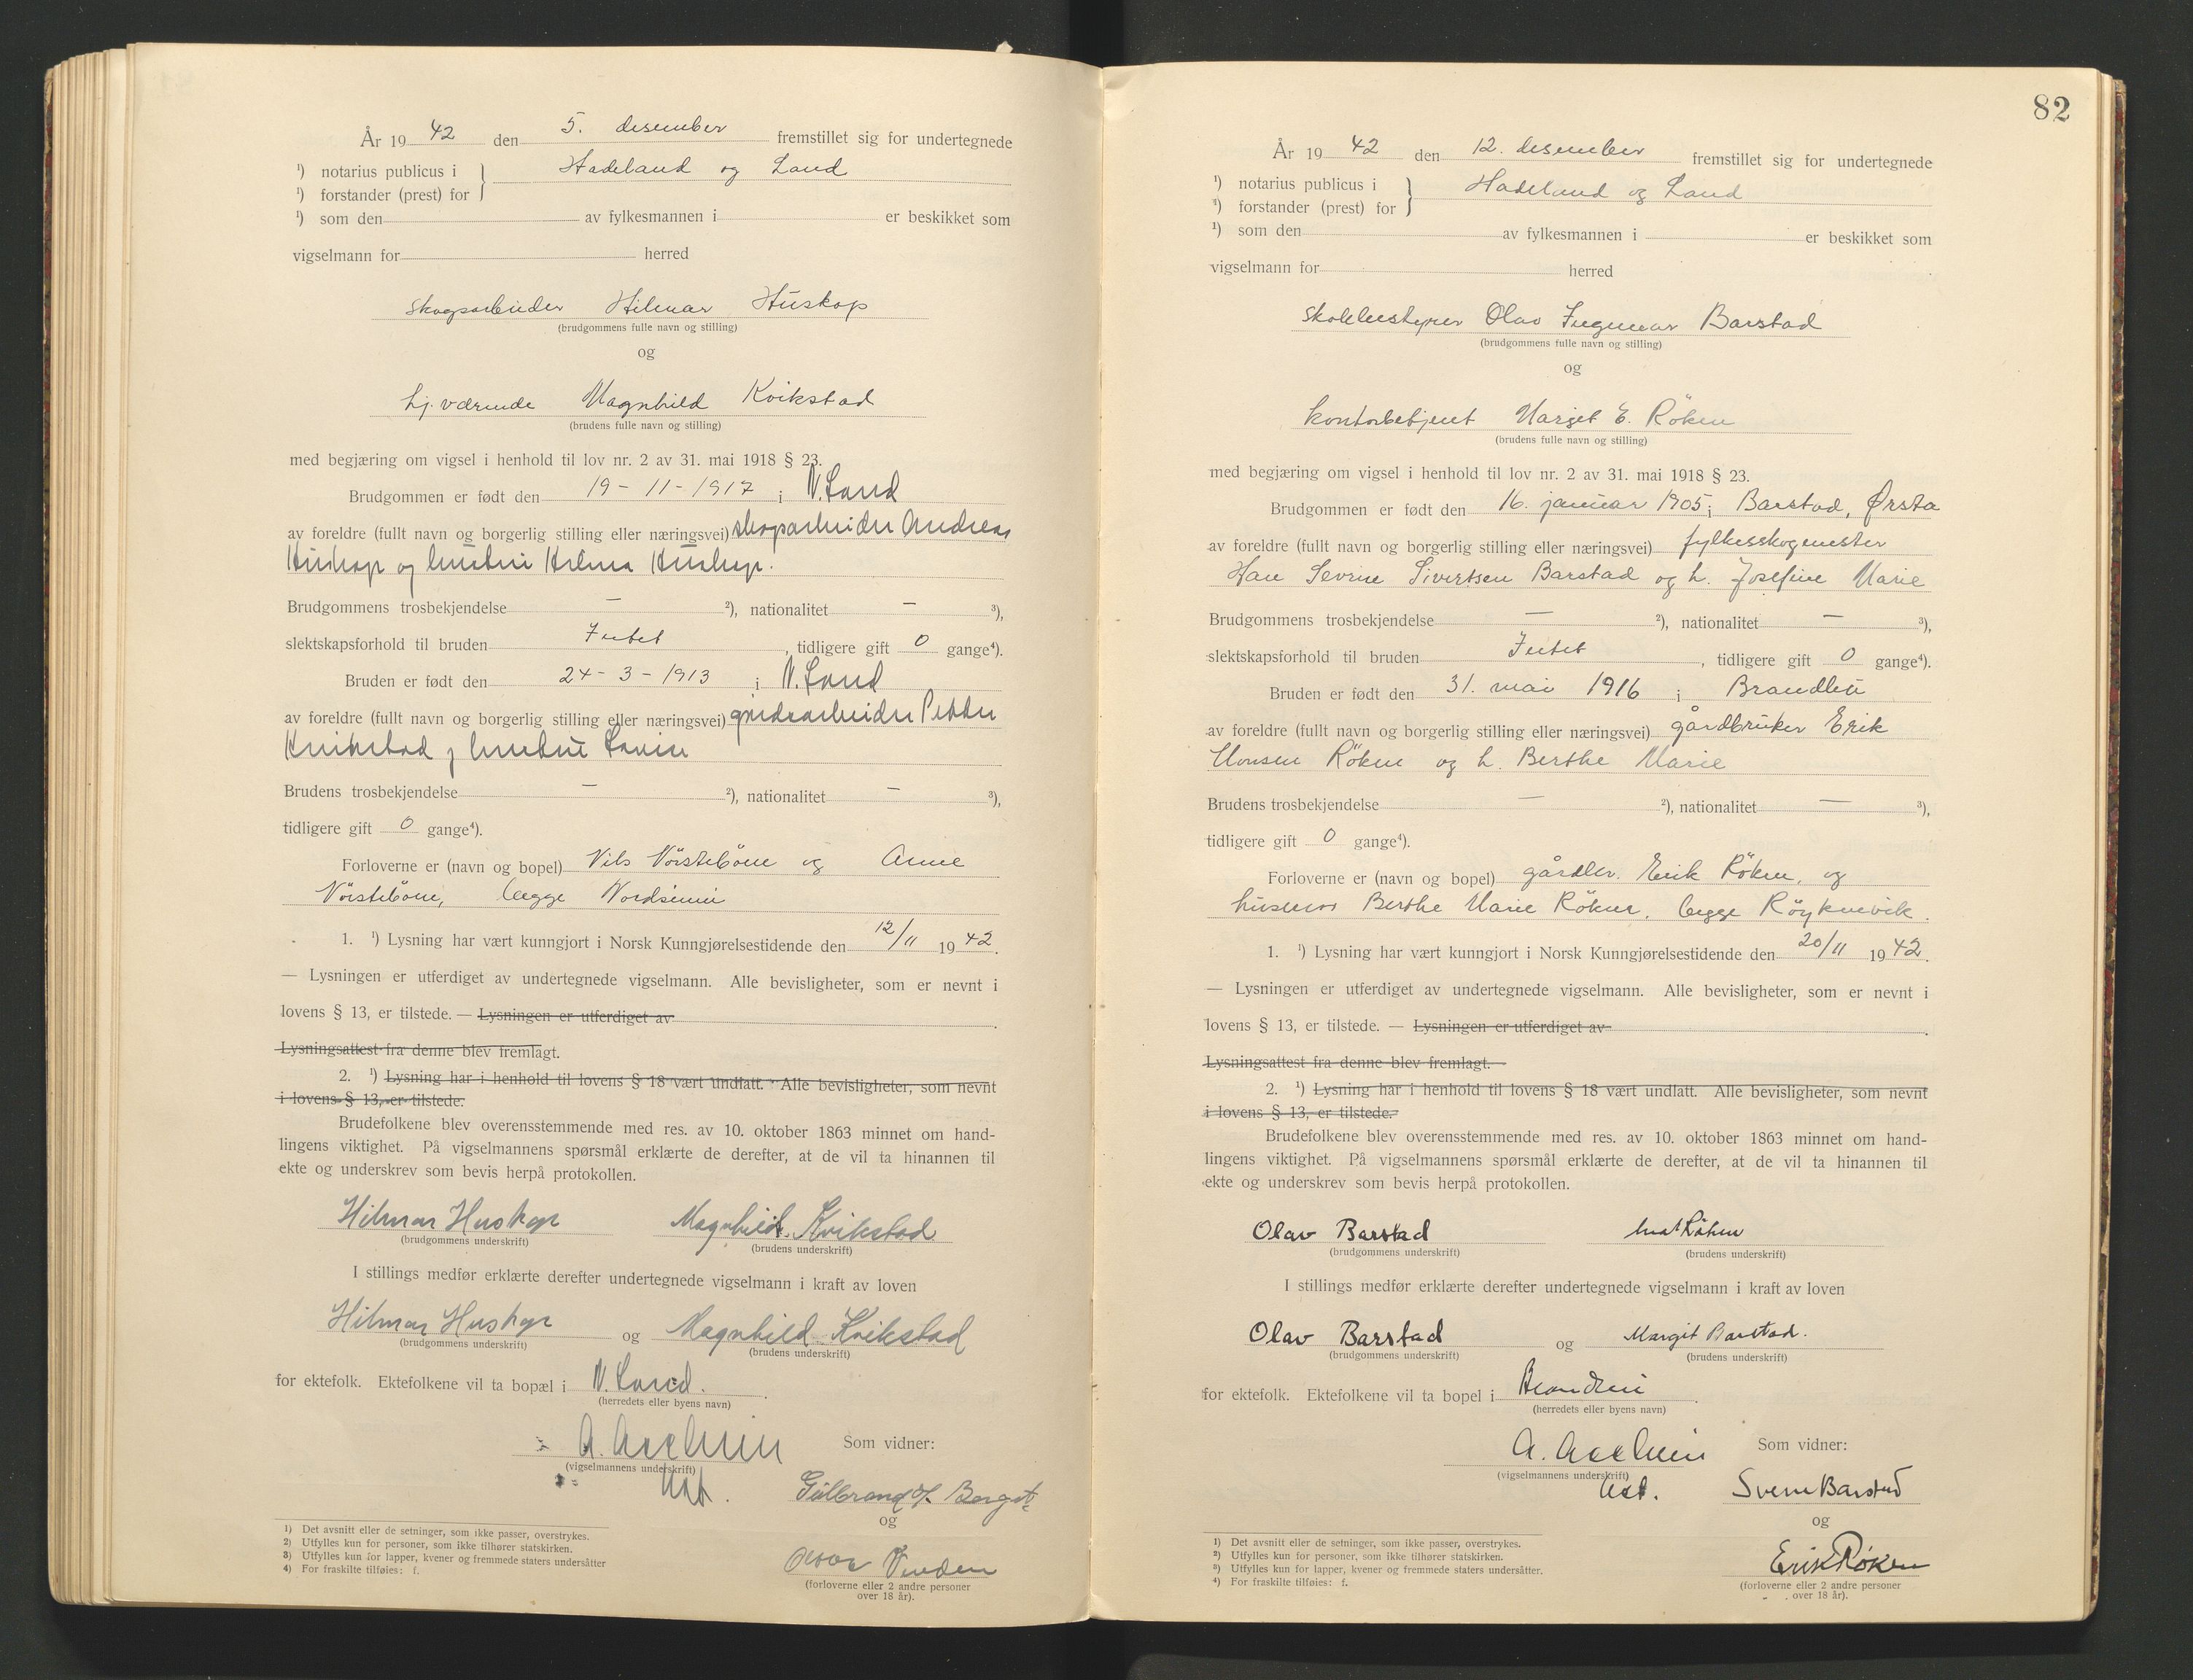 År 19 42 den 5. desember fremstillet sig for undertegnede
¹) notarius publicus i Hadeland og Land
¹) forstander (prest) for
¹) som den av fylkesmannen i er beskikket som
vigselmann for herred
skogsarbeider Hilmar Huskop
(brudgommens fulle navn og stilling)
og
hj.værende Magnhild Kvikstad
(brudens fulle navn og stilling)
med begjæring om vigsel i henhold til lov nr. 2 av 31. mai 1918 § 23.
Brudgommen er født den 19 - 11 - 1917 i N. Land
av foreldre (fullt navn og borgerlig stilling eller næringsvei) skogsarbeider Andreas
Huskop og hustru Helma Huskop.
Brudgommens trosbekjendelse — ²), nationalitet — ³),
slektskapsforhold til bruden Intet, tidligere gift 0 gange⁴).
Bruden er født den 24 - 3 - 1913 i N. Land
av foreldre (fullt navn og borgerlig stilling eller næringsvei) gårdsarbeider Petter
Kvikstad og hustru Lovise
Brudens trosbekjendelse — ²), nationalitet — ³),
tidligere gift 0 gange⁴).
Forloverne er (navn og bopel) Nils Nörsteböue og Anne
Nörsteböue, begge Nordsinni
1. ¹) Lysning har vært kunngjort i Norsk Kunngjørelsestidende den 12/11 19 42.
— Lysningen er utferdiget av undertegnede vigselmann. Alle bevisligheter, som er nevnt i
lovens § 13, er tilstede. — Lysningen er utferdiget av
Lysningsattest fra denne blev fremlagt.
2. ¹) Lysning har i henhold til lovens § 18 vært undlatt. Alle bevisligheter, som nevnt
i lovens § 13, er tilstede.
Brudefolkene blev overensstemmende med res. av 10. oktober 1863 minnet om hand-
lingens viktighet. På vigselmannens spørsmål erklærte de derefter, at de vil ta hinannen til
ekte og underskrev som bevis herpå protokollen.
Hilmar Huskop Magnhild Kvikstad
(brudgommens underskrift) (brudens underskrift)
I stillings medfør erklærte derefter undertegnede vigselmann i kraft av loven
Hilmar Huskop og Magnhild Kvikstad
(brudgommens underskrift) (brudens underskrift)
for ektefolk. Ektefolkene vil ta bopæl i N. Land.
(herredets eller byens navn)
A. Som vidner:
(vigselmannens underskrift)
Gulbrand
og
(forloverne eller 2 andre personer
over 18 år).
1) Det avsnitt eller de setninger, som ikke passer, overstrykes.
2) Utfylles kun for personer, som ikke tilhører statskirken.
3) Utfylles kun for lapper, kvener og fremmede staters undersåtter
4) For fraskilte tilføies: f.
82
År 19 42 den 12. desember fremstillet sig for undertegnede
¹) notarius publicus i Hadeland og Land
¹) forstander (prest) for
¹) som den av fylkesmannen i er beskikket som
vigselmann for herred
skolebestyrer Olav Ingmar Barstad
(brudgommens fulle navn og stilling)
og
kontorbetjent Margit E. Röken
(brudens fulle navn og stilling)
med begjæring om vigsel i henhold til lov nr. 2 av 31. mai 1918 § 23.
Brudgommen er født den 16. januar 1905 i Barstad, Ørsta
av foreldre (fullt navn og borgerlig stilling eller næringsvei) fylkesskogmester
Hans Severin Sivertsen Barstad og h. Josefine Marie
Brudgommens trosbekjendelse — ²), nationalitet — ³),
slektskapsforhold til bruden Intet, tidligere gift 0 gange⁴).
Bruden er født den 31. mai 1916 i Brandbu
av foreldre (fullt navn og borgerlig stilling eller næringsvei) gårdbruker Erik
Monsen Röken og h. Berthe Marie
Brudens trosbekjendelse — ²), nationalitet — ³),
tidligere gift 0 gange⁴).
Forloverne er (navn og bopel) gårdbr. Erik Röken, og
husmor Berthe Marie Röken, begge Röykenvik.
1. ¹) Lysning har vært kunngjort i Norsk Kunngjørelsestidende den 20/11 19 42.
— Lysningen er utferdiget av undertegnede vigselmann. Alle bevisligheter, som er nevnt i
lovens § 13, er tilstede. — Lysningen er utferdiget av
Lysningsattest fra denne blev fremlagt.
2. ¹) Lysning har i henhold til lovens § 18 vært undlatt. Alle bevisligheter, som nevnt
i lovens § 13, er tilstede.
Brudefolkene blev overensstemmende med res. av 10. oktober 1863 minnet om hand-
lingens viktighet. På vigselmannens spørsmål erklærte de derefter, at de vil ta hinannen til
ekte og underskrev som bevis herpå protokollen.
Olav Barstad Röken
(brudgommens underskrift) (brudens underskrift)
I stillings medfør erklærte derefter undertegnede vigselmann i kraft av loven
Olav Barstad og Margit Barstad.
(brudgommens underskrift) (brudens underskrift)
for ektefolk. Ektefolkene vil ta bopel i Brandbu
(herredets eller byens navn)
A. Som vidner:
(vigselmannens underskrift)
Svein Barstad
og
Erik Røken
(forloverne eller 2 andre personer
over 18 år).
1) Det avsnitt eller de setninger, som ikke passer, overstrykes.
2) Utfylles kun for personer, som ikke tilhører statskirken.
3) Utfylles kun for lapper, kvener og fremmede staters undersåtter.
4) For fraskilte tilføies: f.